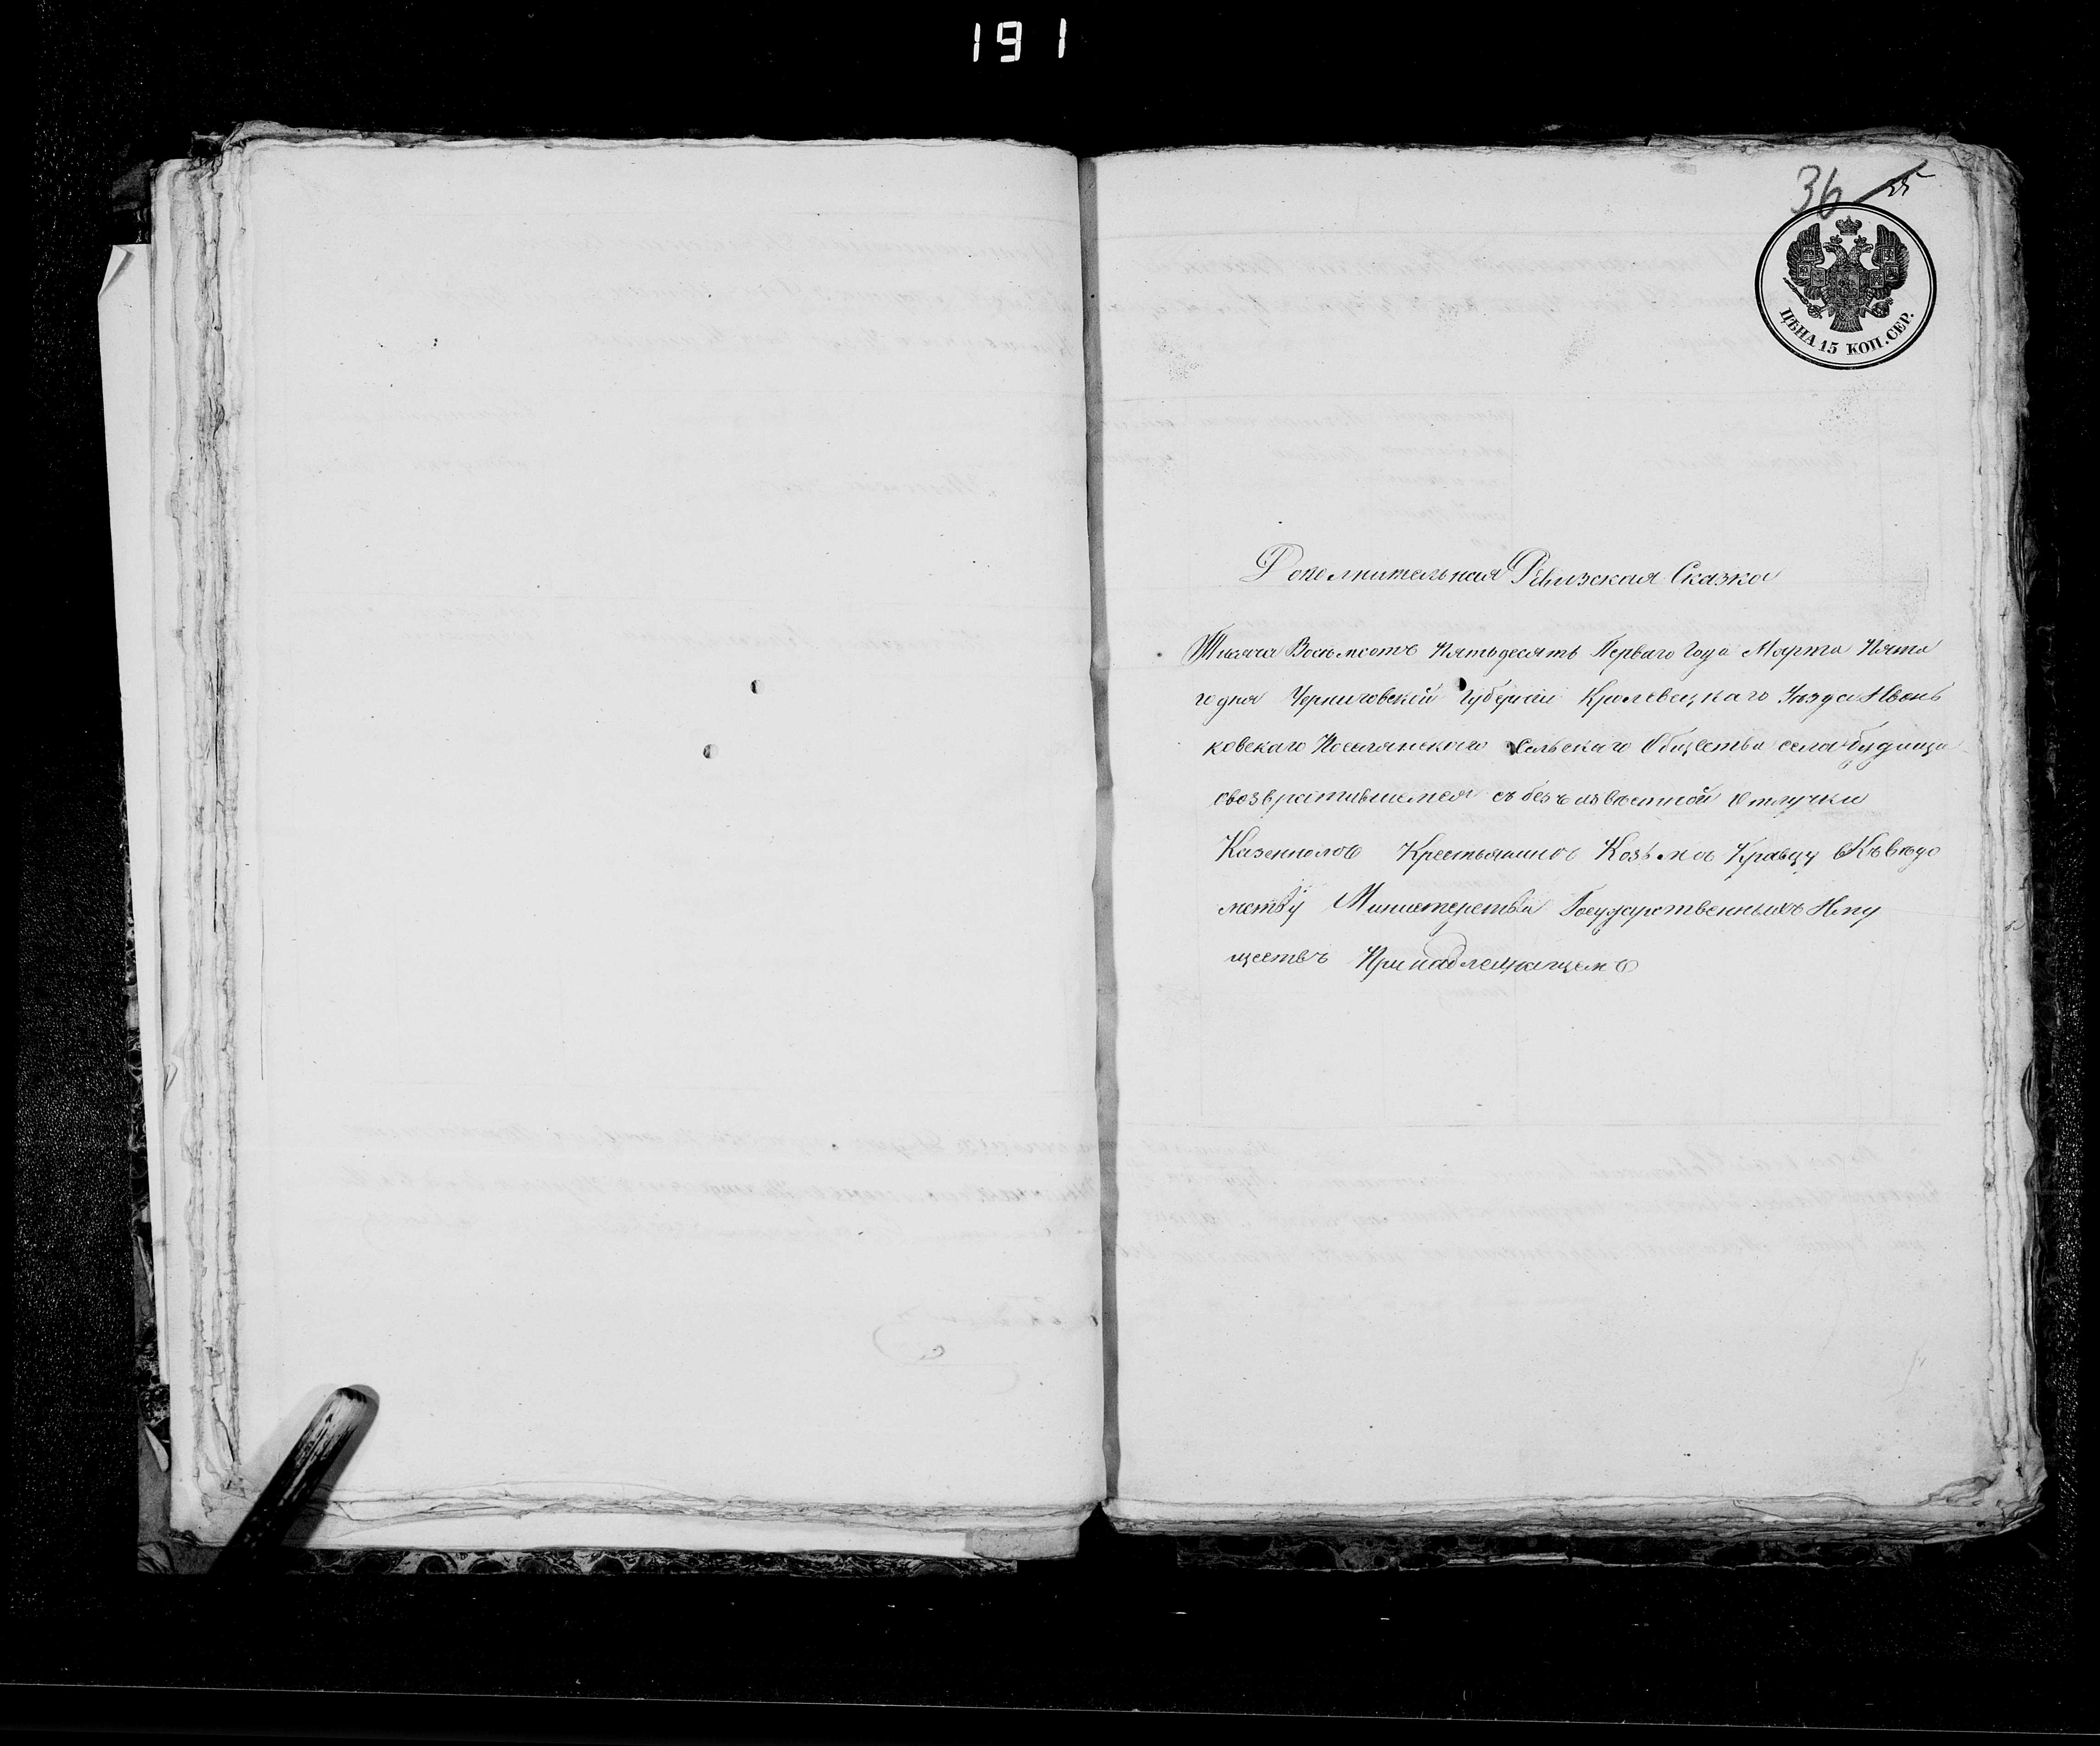 191
36 25
ЦѢНА 15 КОП. СЕР.
Дополнительная Ревизская Сказка
Тысяча Восемсотъ Пятьдесятъ Перваго Года Марта Пята
го дня Черниговской Губерніи Кролевецкаго Уѣзда Ивонь
ковскаго Сельскаго Общества села будища
овозвратившемся съ безъизвѣстной Отлучки
Казенномъ Крестьянинѣ Козьмѣ Кравцу Къ вѣдо
мству Министерства Государственныхъ Иму
ществъ Принадлежащемъ